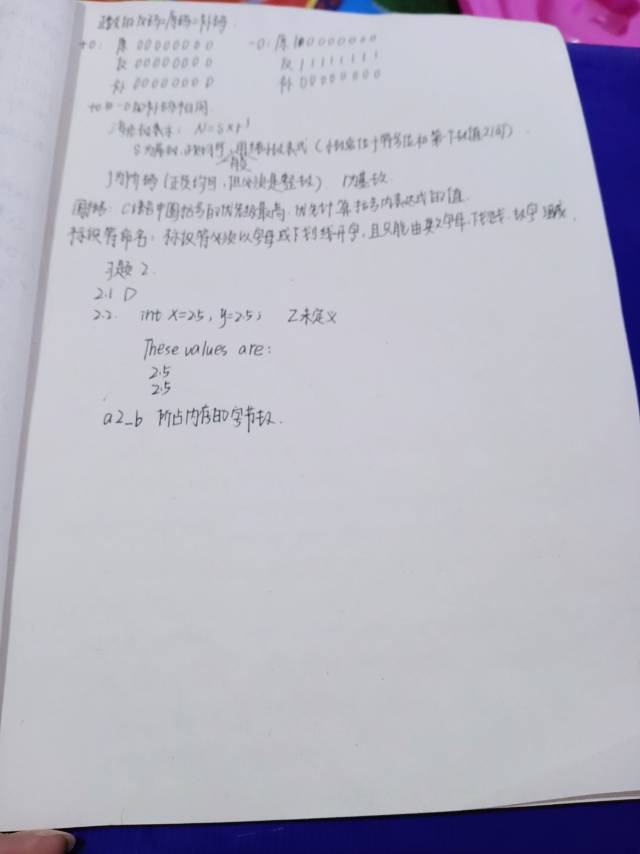 正数的反码=原码=补码.
+0: 原 00000000 -0: 原 10000000
反 00000000 反 11111111
补 00000000 补 00000000
+0和-0的补码相同
浮点数表示: N=S×r^j
S为尾数,正负均可,用纯小数表式(小数点位于符号位和第一个数值之间)
j为阶码(正负均可,但必须是整数) r为基数
圆括号: C语言中圆括号的优先级最高.优先计算括号内表达式的值.
标识符命名: 标识符必须以字母或下划线开字,且只能由英文字母.下划线.数字组成.
习题2.
2.1 D
2.2. int x=2.5, y=2.5; Z未定义
These values are:
2.5
2.5
a2_b 所占内存的字节数.